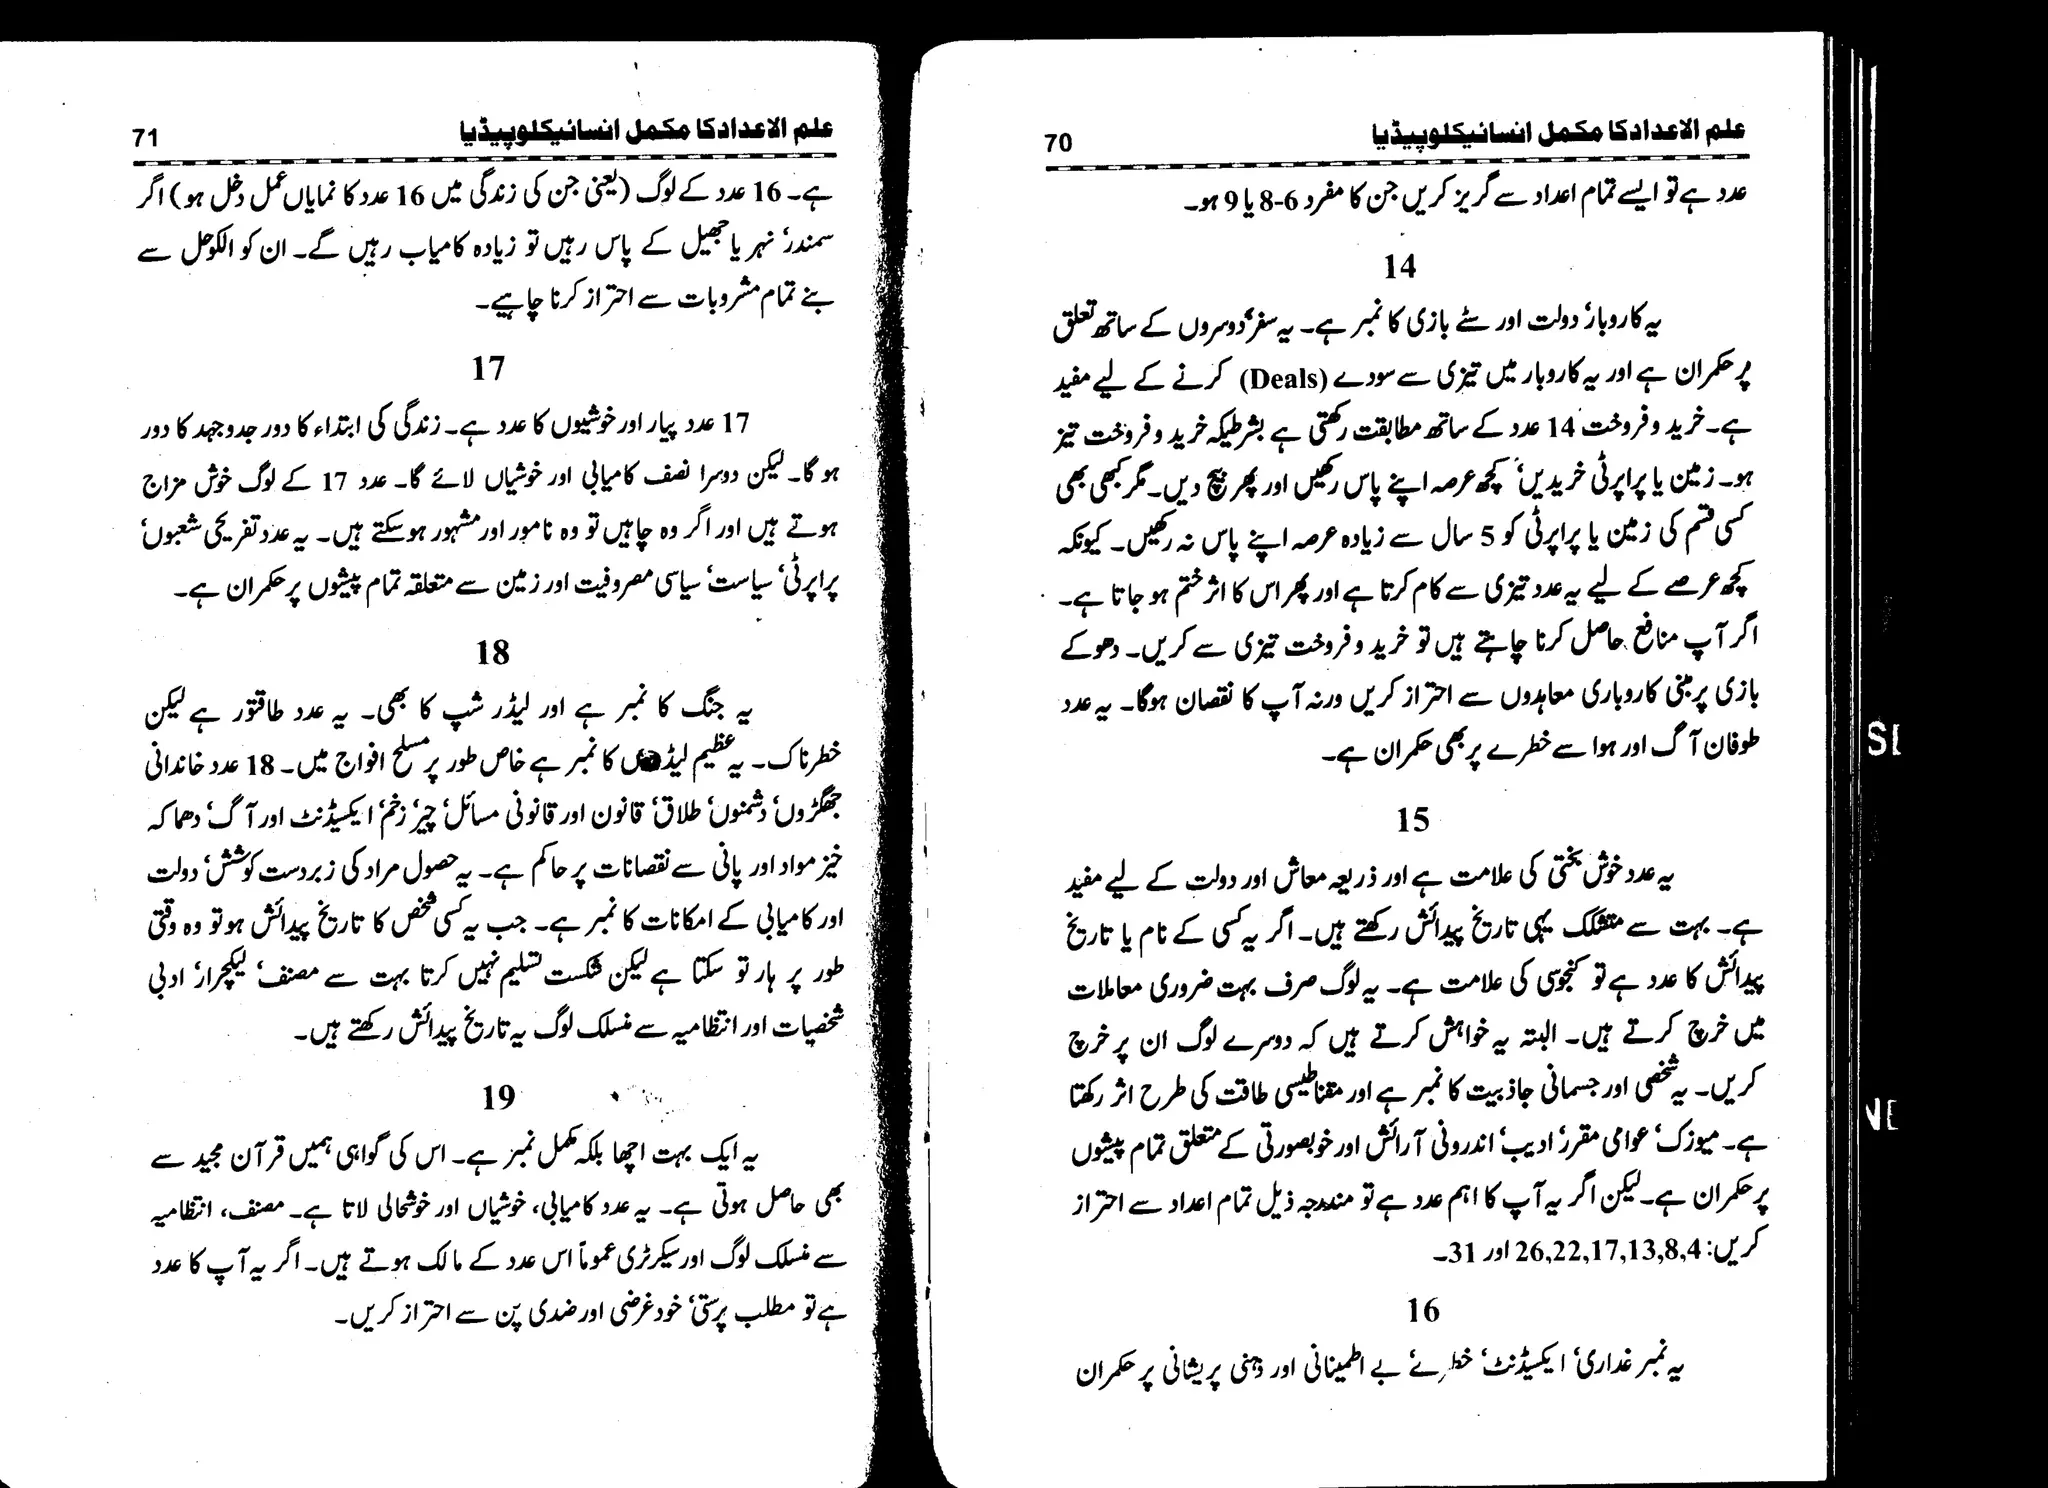 علم الاعداد کا مکمل انسائیکلوپیڈیا 70
عدد ہے تو ایسے تمام اعداد سے گریز کریں جن کا مفرد 6-8 یا 9 ہو۔
14
یہ کاروبار‘ دولت اور سٹے بازی کا نمبر ہے۔ یہ سفر‘ دوسروں کے ساتھ تعلق
پر حکمران ہے اور یہ کاروبار میں تیزی سے سودے (Deals) کرنے کے لیے مفید
ہے۔ خرید و فروخت 14 عدد کے ساتھ مطابقت رکھتی ہے بشرطیکہ خرید و فروخت تیز
ہو۔ زمین یا پراپرٹی خریدیں‘ کچھ عرصہ اپنے پاس رکھیں اور پھر بیچ دیں۔ مگر کبھی بھی
کسی قسم کی زمین یا پراپرٹی کو 5 سال سے زیادہ عرصہ اپنے پاس نہ رکھیں۔ کیونکہ
کچھ عرصے کے لیے یہ عدد تیزی سے کام کرتا ہے اور پھر اس کا اثر ختم ہو جاتا ہے۔
اگر آپ منافع حاصل کرنا چاہتے ہیں تو خرید و فروخت تیزی سے کریں۔ دھوکے
بازی پر مبنی کاروباری معاہدوں سے احتراز کریں ورنہ آپ کا نقصان ہوگا۔ یہ عدد
طوفان آگ اور ہوا سے خطرے پر بھی حکمران ہے۔
15
یہ عدد خوش بختی کی علامت ہے اور ذریعہ معاش اور دولت کے لیے مفید
ہے۔ بہت سے متشکک یہی تاریخ پیدائش رکھتے ہیں۔ اگر یہ کسی کے نام یا تاریخ
پیدائش کا عدد ہے تو کنجوسی کی علامت ہے۔ یہ لوگ صرف بہت ضروری معاملات
میں خرچ کرتے ہیں۔ البتہ یہ خواہش کرتے ہیں کہ دوسرے لوگ ان پر خرچ
کریں۔ یہ شخصی اور جسمانی جاذبیت کا نمبر ہے اور مقناطیسی طاقت کی طرح اثر رکھتا
ہے۔ میوزک‘ عوامی مقرر‘ ادیب‘ اندرونی آرائش اور خوبصورتی کے متعلق تمام پیشوں
پر حکمران ہے۔ لیکن اگر یہ آپ کا اہم عدد ہے تو مندرجہ ذیل تمام اعداد سے احتراز
کریں: 26,22,17,13,8,4 اور 31۔
16
یہ نمبر غداری‘ ایکسیڈنٹ‘ خطرے‘ بے اطمینانی اور ذہنی پریشانی پر حکمران
علم الاعداد کا مکمل انسائیکلوپیڈیا 71
ہے۔ 16 عدد کے لوگ (یعنی جن کی زندگی میں 16 عدد کا نمایاں عمل دخل ہو) اگر
سمندر‘ نہر یا جھیل کے پاس رہیں تو زیادہ کامیاب رہیں گے۔ ان کو الکوحل سے
بنے تمام مشروبات سے احتراز کرنا چاہیے۔
17
17 عدد پیار اور خوشیوں کا عدد ہے۔ زندگی کی ابتداء کا دور جدوجہد کا دور
ہو گا۔ لیکن دوسرا نصف کامیابی اور خوشیاں لائے گا۔ عدد 17 کے لوگ خوش مزاج
ہوتے ہیں اور اگر وہ چاہیں تو وہ نامور اور مشہور ہو سکتے ہیں۔ یہ عدد تفریحی شعبوں‘
پراپرٹی‘ سیاست‘ سیاسی مصروفیت اور زمین سے متعلقہ تمام پیشوں پر حکمران ہے۔
18
یہ جنگ کا نمبر ہے اور لیڈر شپ کا بھی۔ یہ عدد طاقتور ہے لیکن
خطرناک۔ یہ عظیم کا نمبر ہے خاص طور پر مسلح افواج میں۔ 18 عدد خاندانی
جھگڑوں‘ دشمنوں‘ طلاق‘ قانون اور قانونی مسائل‘ چیر‘ زخم‘ ایکسیڈنٹ اور آگ‘ دھماکہ
خیز مواد اور پانی سے نقصانات پر حاکم ہے۔ یہ حصول مراد کی زبردست کوشش‘ دولت
اور کامیابی کے امکانات کا نمبر ہے۔ جب یہ کسی شخص کا تاریخ پیدائش ہو تو وہ وقتی
طور پر ہار تو سکتا ہے لیکن شکست تسلیم نہیں کرتا بہت سے مصنف‘ لیکچرار‘ ادبی
شخصیات اور انتظامیہ سے منسلک لوگ یہ تاریخ پیدائش رکھتے ہیں۔
19
یہ ایک بہت اچھا بلکہ مکمل نمبر ہے۔ اس کی گواہی ہمیں قرآن مجید سے
بھی حاصل ہوتی ہے۔ یہ عدد کامیابی، خوشیاں اور خوشحالی لاتا ہے۔ مصنف، انتظامیہ
سے منسلک لوگ اور سیکرٹری عموماً اس عدد کے مالک ہوتے ہیں۔ اگر یہ آپ کا عدد
ہے تو مطلب پرستی‘ خود غرضی اور ضدی پن سے احتراز کریں۔